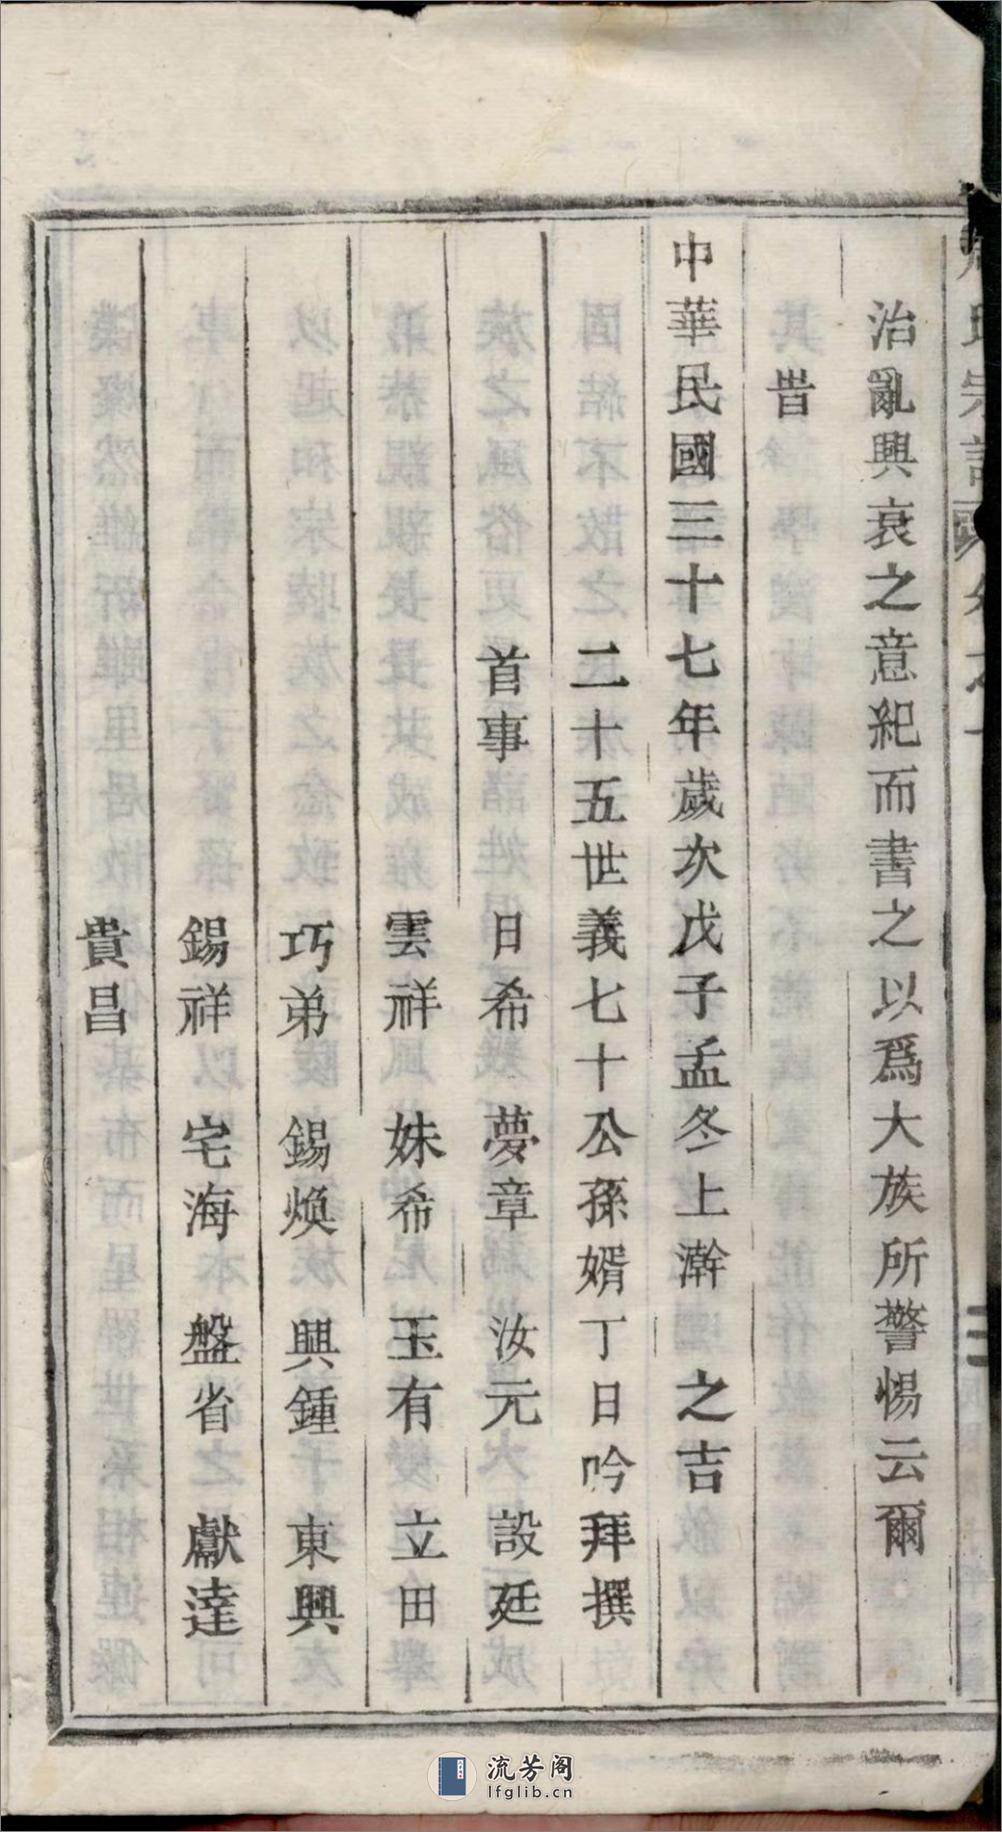 氏宗譜
治亂興衰之意紀而書之以爲大族所警惕云爾
旹
中華民國三十七年歲次戊子孟冬上澣 之吉
二十五世義七十公孫婿丁日吟拜撰
首事 日希 夢章 汝元 設廷
雲祥 妹希 玉有 立田
巧弟 錫煥 興鍾 東興
錫祥 宅海 盤省 獻達
貴昌
流芳阁
lfglib.cn